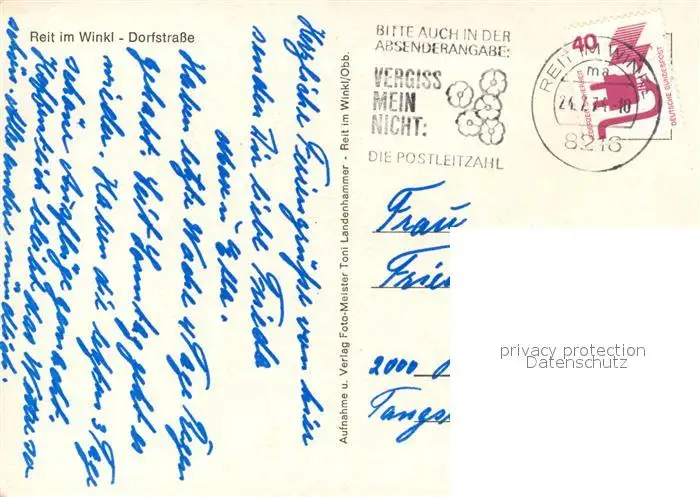 Reit im Winkl - Dorfstraße
Herzliche Feriengrüße von hier
senden Dir liebe Frieda
Ella.
Haben letzte Woche 4 Tage Regen
gehabt. Seit Sonntag geht es
wieder. Haben die letzten 3 Tage
schöne Ausflüge gemacht.
Hoffentlich bleibt das Wetter so
schön. Alles andere mündlich.
Aufnahme u. Verlag Foto-Meister Toni Landenhammer - Reit im Winkl/Obb.
BITTE AUCH IN DER
ABSENDERANGABE:
VERGISS
MEIN
NICHT:
DIE POSTLEITZAHL
REIT IM WINKL
ma
8216
40
DEUTSCHE BUNDESPOST
Frau
Frie
2000
Tangs
privacy protection
Datenschutz